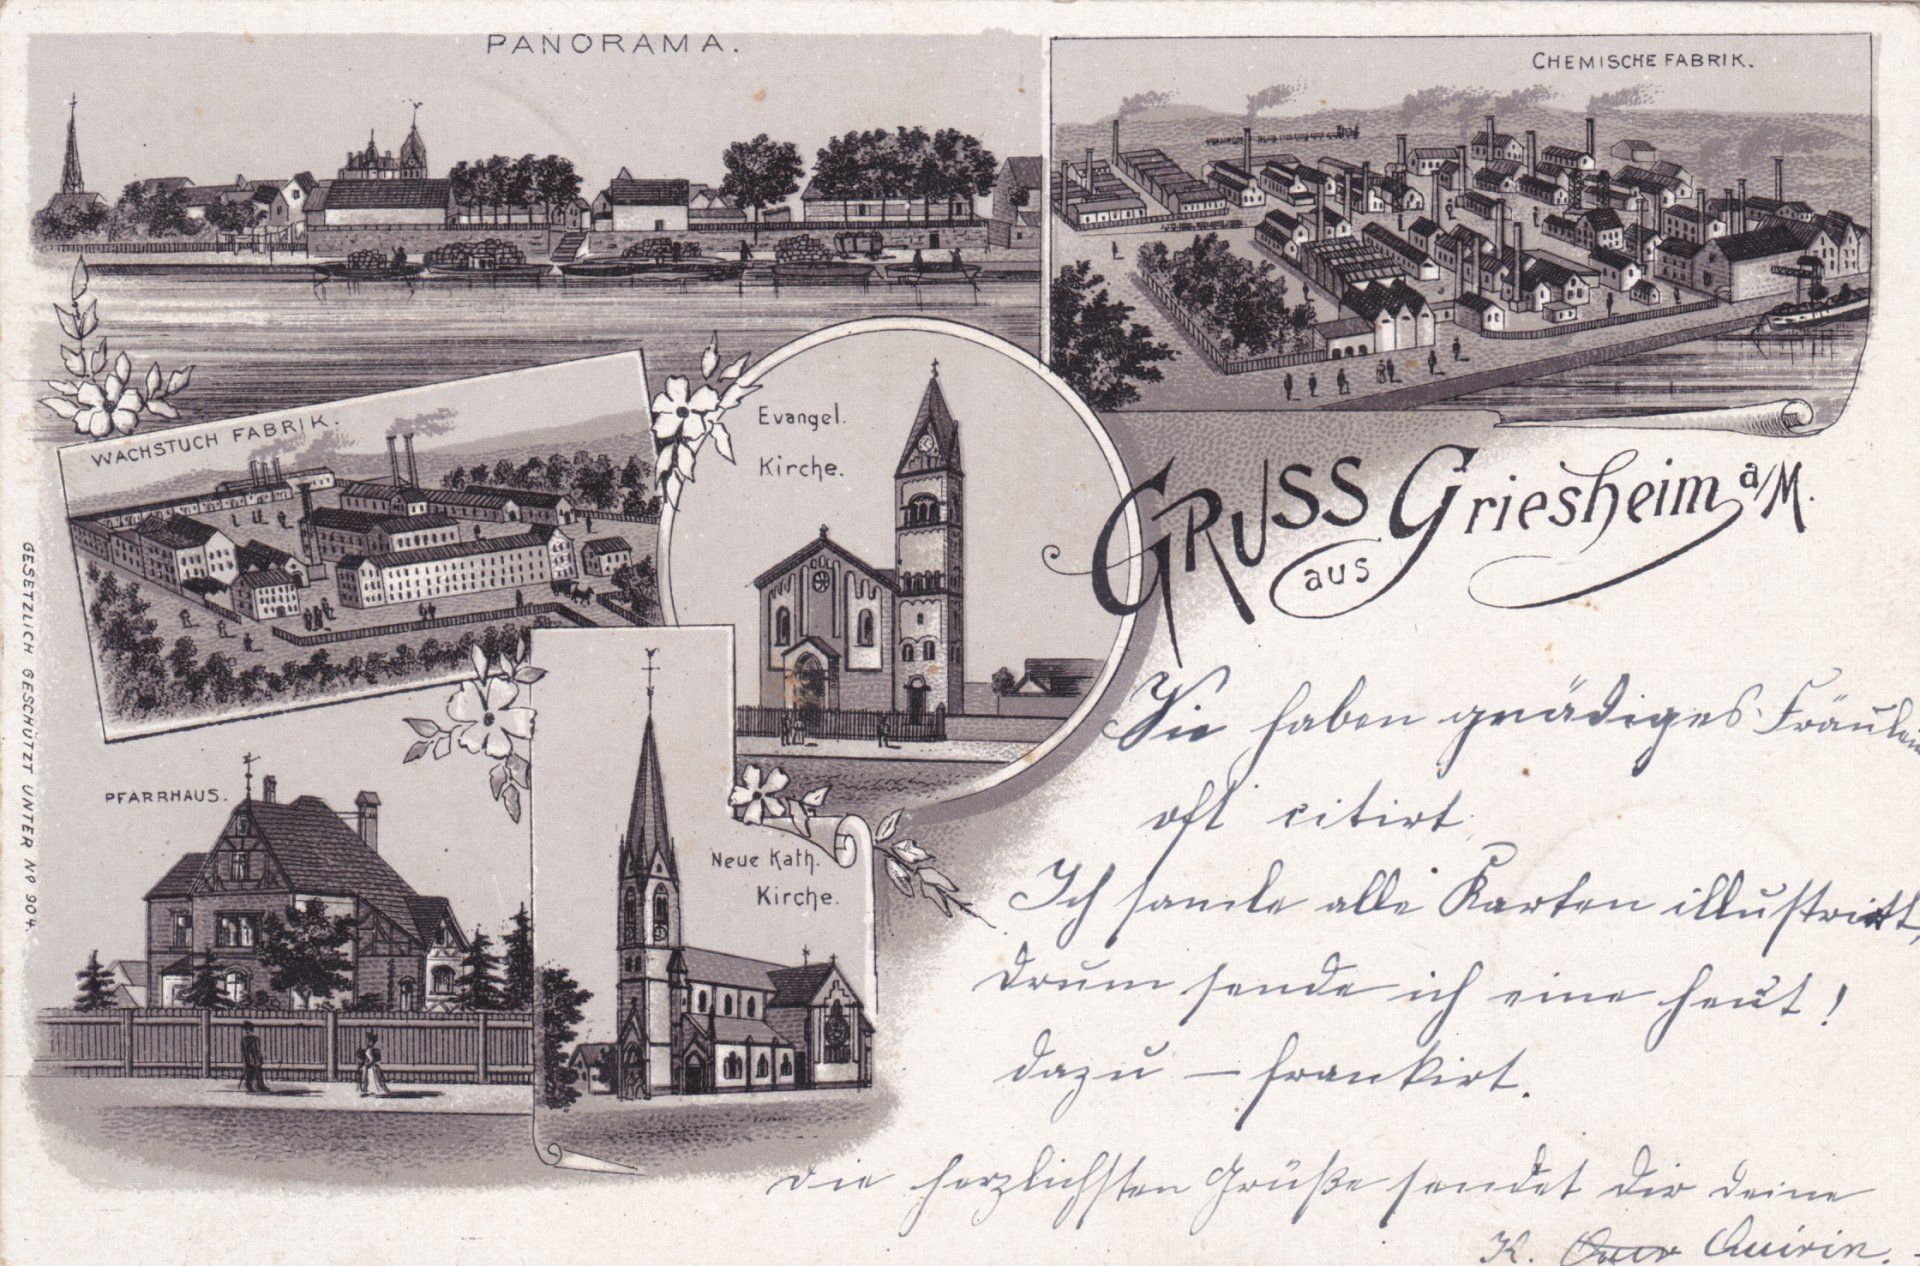 PANORAMA.
CHEMISCHE FABRIK.
WACHSTUCH FABRIK.
Evangel.
Kirche.
GRUSS
aus
Griesheim a/M.
PFARRHAUS.
Neue Kath.
Kirche.
GESETZLICH GESCHÜTZT UNTER No 904.
Sie haben gnädiges Fräulein
oft citirt
Ich sande alle Karten illustrirt,
drum sende ich eine heut!
dazu – frankirt.
die herzlichsten Grüße sendet Dir deine
K. Quirin.